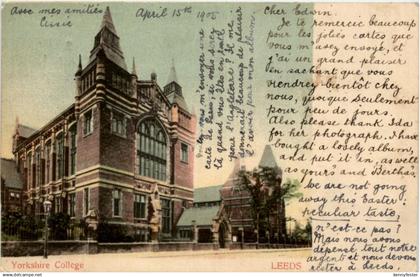 Avec mes amitiés
Cissie
April 15th 1905
Cher Edwin.
Je te remercie beaucoup
pour les jolies cartes que
vous m'asez envoyé, et
j'ai un grand plaisir
en sachant que vous
viendrey bientôt chez
nous, quoique seulement
pour peu de jours.
Also please thank Ida
for her photograph. I have
bought a lovely album,
and put it in, as well
as yours and Bertha's
we are not going
away this Easter.
peculiar taste,
n'est-ce pas?
Mais nous avons
dépensé tout notre
argent et nous devons
rester à Leeds.
carte de
quand vous êtes en
pour l'Angleterre? Il me
beaucoup de plaisir
l'avoir pour mon album
Yorkshire College
LEEDS